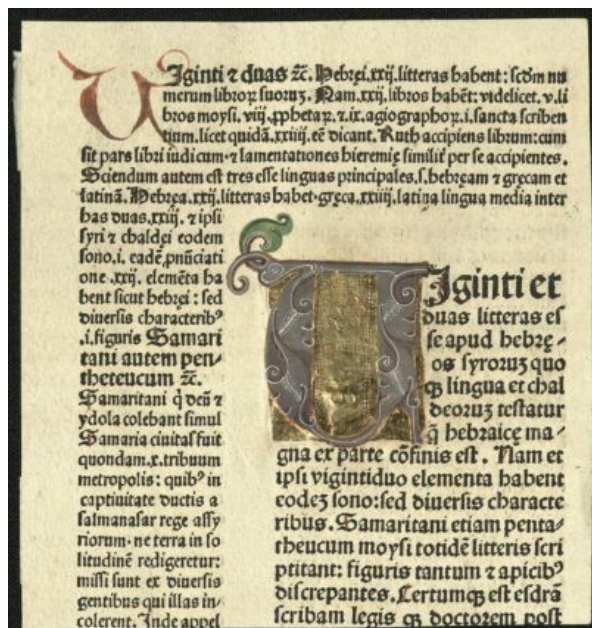 VIginti ⁊ duas ⁊c̄. Hebręi .xxij. litteras habent: scd̄m nu
merum libroꝝ suoruʒ. Nam .xxij. libros habēt: videlicet .v. li
bros moysi, viij. ꝓphetaꝝ. ⁊ .ix. agiographoꝝ .i. sancta scriben
tium. licet quidā .xxiiij. eē dicant. Ruth accipiens librum: cum
sit pars libri iudicum. ⁊ lamentationes hieremię similiť per se accipientes.
Sciendum autem est tres esse linguas principales .s. hebręam ⁊ gręcam et
latinā. Hebręa .xxij. litteras habet. gręca .xxiiij. latina lingua media inter
has duas .xxiij. ⁊ ipsi
syri ⁊ chaldęi eodem
sono .i. eadē ꝓnūciati
one .xxij. elemēta ha
bent sicut hebręi: sed
diuersis characterib⁹
.i. figuris Samari
tani autem pen⸗
theteucum ⁊c̄.
Samaritani q̇ deū ⁊
ydola colebant simul
Samaria ciuitas fuit
quondam .x. tribuum
metropolis: quib⁹ in
captiuitate ductis a
salmanasar rege assy
riorum. ne terra in so
litudinē redigeretur:
missi sunt ex diuersis
gentibus qui illas in⸗
colerent. Inde appel
VIginti et
duas litteras es
se apud hebrę⸗
os syroruʒ quo
qꝫ lingua et chal
deoruʒ testatur
q̄ hebraicę ma⸗
gna ex parte cōfinis est. Nam et
ipsi vigintiduo elementa habent
eodeʒ sono: sed diuersis characte
ribus. Samaritani etiam penta⸗
theucum moysi totidē litteris scri
ptitant: figuris tantum ⁊ apicib⁹
discrepantes. Certumqꝫ est esdrā
scribam legis qꝫ doctorem post